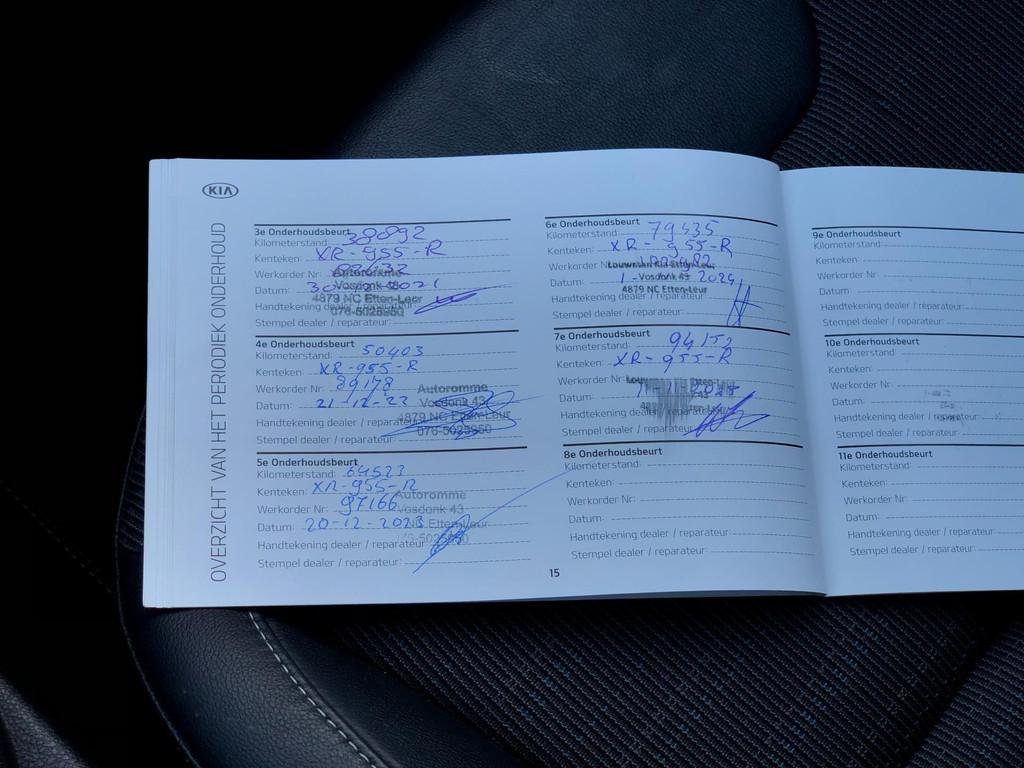 KIA
OVERZICHT VAN HET PERIODIEK ONDERHOUD
3e Onderhoudsbeurt
Kilometerstand: 38892
Kenteken: XR-955-R
Werkorder Nr:
Autoromme
Datum:
Vosdonk 43
Handtekening dealer / reparateur:
4879 NC Etten-Leur
076-5025950
Stempel dealer / reparateur:
4e Onderhoudsbeurt
Kilometerstand: 50403
Kenteken: XR-955-R
Werkorder Nr: 89178
Autoromme
Datum: 21-12-22
Vosdonk 43
Handtekening dealer / reparateur:
4879 NC Etten-Leur
076-5025950
Stempel dealer / reparateur:
5e Onderhoudsbeurt
Kilometerstand: 64523
Kenteken: XR-955-R
Werkorder Nr: 97166
Autoromme
Vosdonk 43
Datum: 20-12-2023
Etten-Leur
Handtekening dealer / reparateur:
Stempel dealer / reparateur:
6e Onderhoudsbeurt
Kilometerstand: 79435
Kenteken: XR-955-R
Werkorder Nr:
Louwman Kia Etten-Leur
Datum: 2024
Vosdonk 43
4879 NC Etten-Leur
Handtekening dealer / reparateur:
Stempel dealer / reparateur:
7e Onderhoudsbeurt
Kilometerstand: 94152
Kenteken: XR-955-R
Werkorder Nr:
Datum:
Handtekening dealer / reparateur:
Stempel dealer / reparateur:
8e Onderhoudsbeurt
Kilometerstand:
Kenteken:
Werkorder Nr:
Datum:
Handtekening dealer / reparateur:
Stempel dealer / reparateur:
15
9e Onderhoudsbeurt
Kilometerstand:
Kenteken:
Werkorder Nr:
Datum:
Handtekening dealer / reparateur:
Stempel dealer / reparateur:
10e Onderhoudsbeurt
Kilometerstand:
Kenteken:
Werkorder Nr:
Datum:
Handtekening dealer / reparateur:
Stempel dealer / reparateur:
11e Onderhoudsbeurt
Kilometerstand:
Kenteken:
Werkorder Nr:
Datum:
Handtekening dealer / reparateur:
Stempel dealer / reparateur: